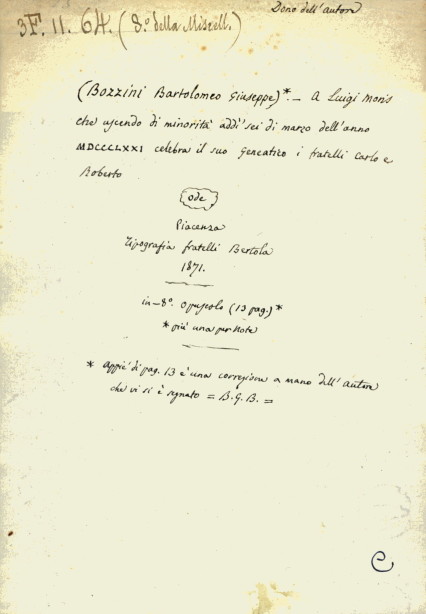 Dono dell'autore
3F. 11. 64. (8.º della Miscell.)
(Bozzini Bartolomeo Giuseppe)*. — A Luigi Moris
che uscendo di minorità addì sei di marzo dell'anno
MDCCCLXXI celebra il suo Genetliaco i fratelli Carlo e
Roberto
Ode
Piacenza
Tipografia fratelli Bertola
1871.
in-8º. opuscolo (13 pag.)*
* più una per Note
* Appiè di pag. 13 è una correzione a mano dell'autore
che vi si è segnato = B. G. B. =
C